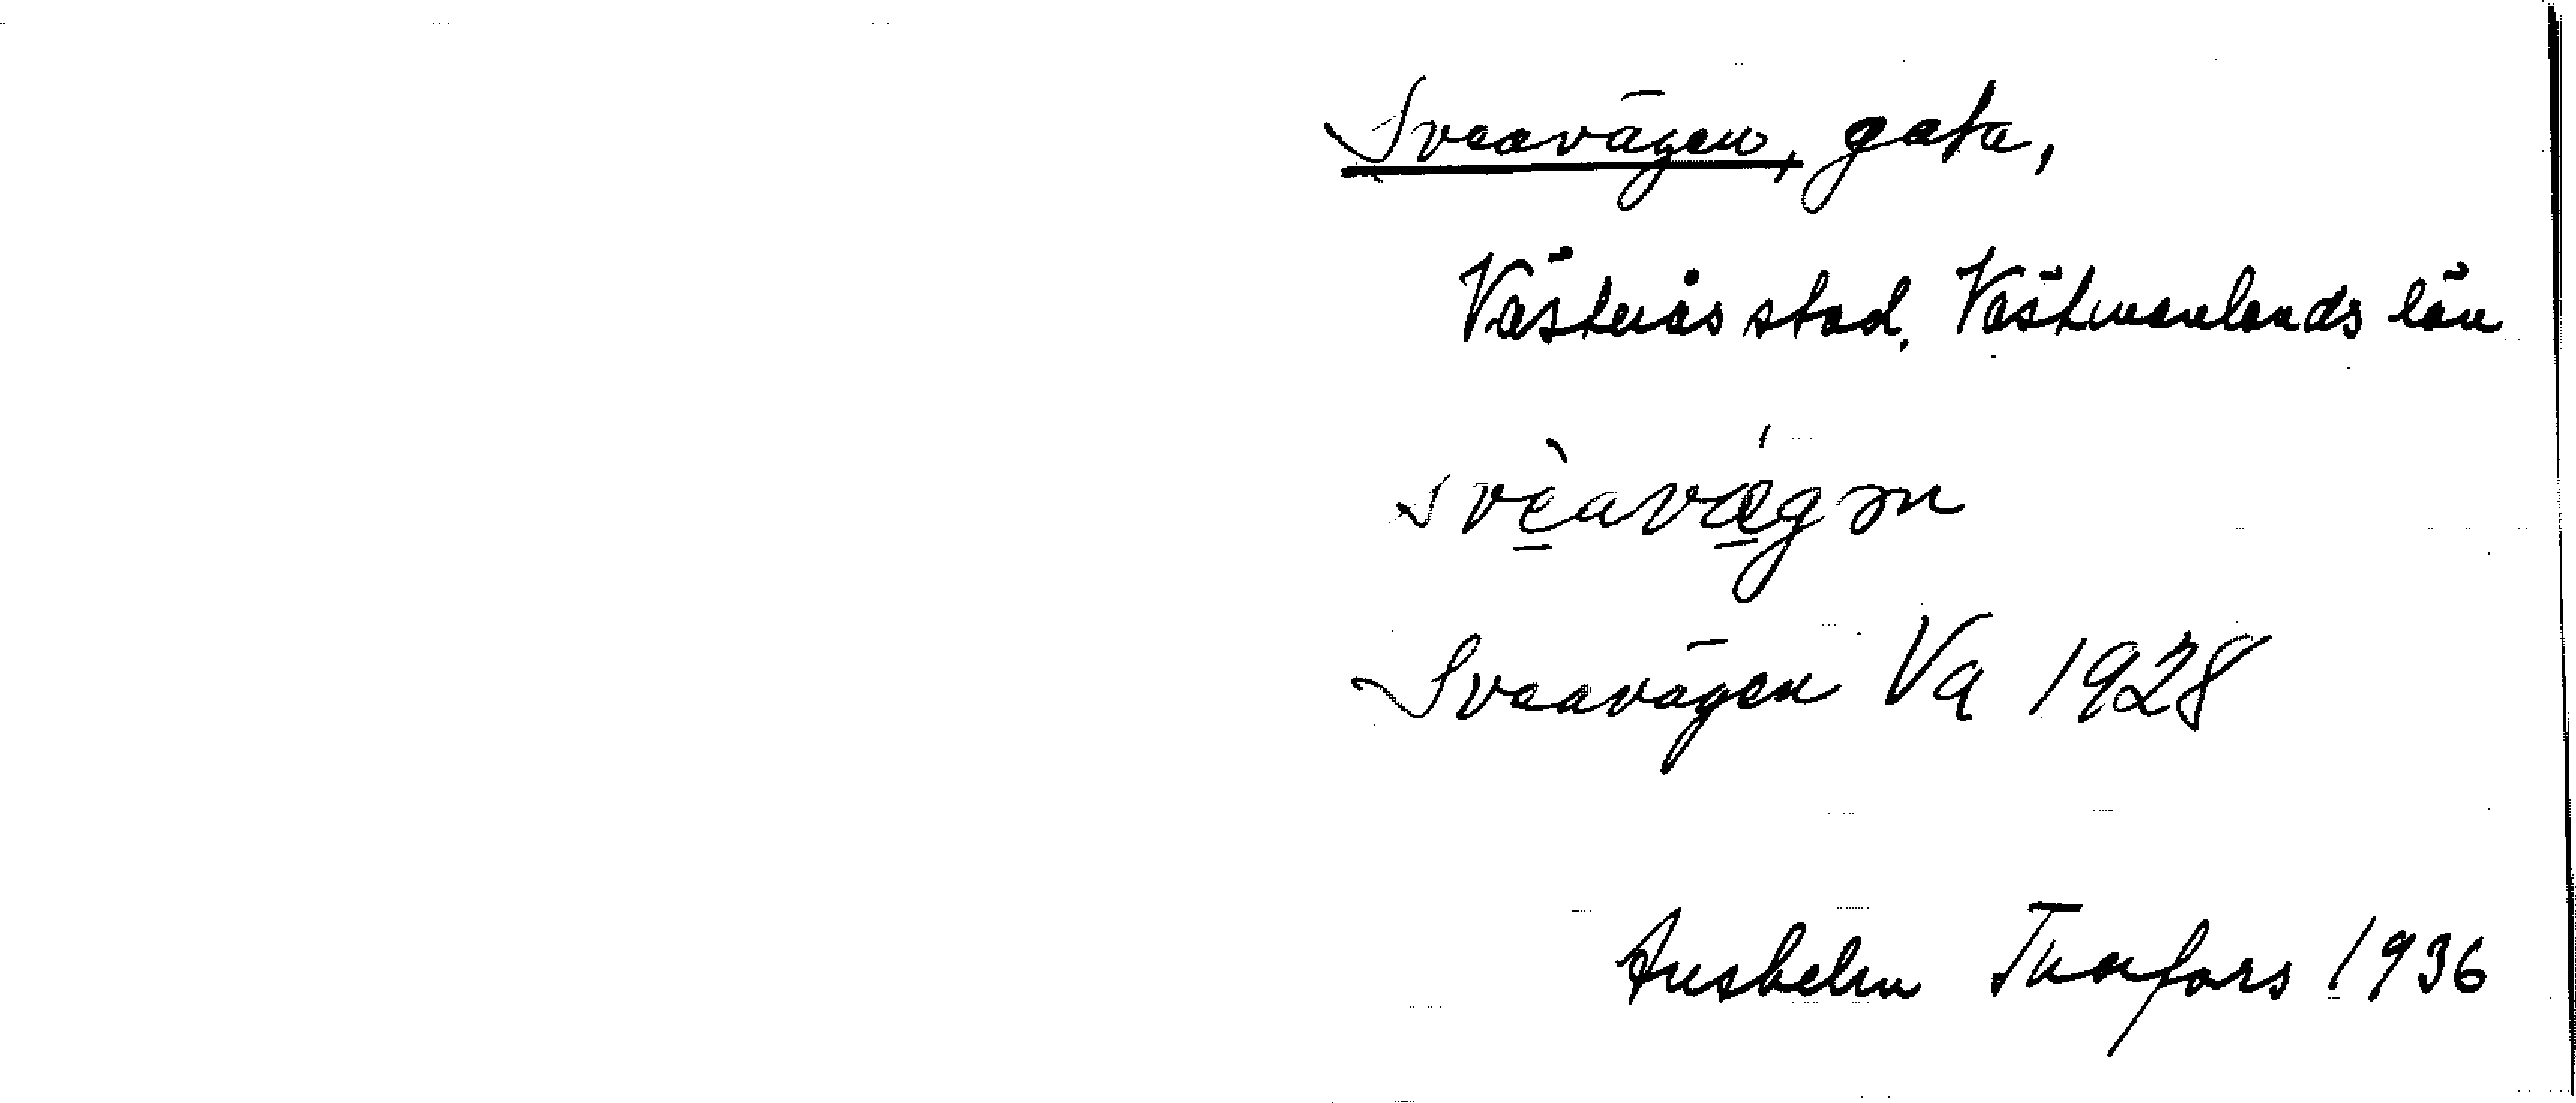 Sveavägen, gata,
Västerås stad, Västmanlands län
svèavǽgən
Sveavägen Va 1928
Anshelm Thorfors 1936